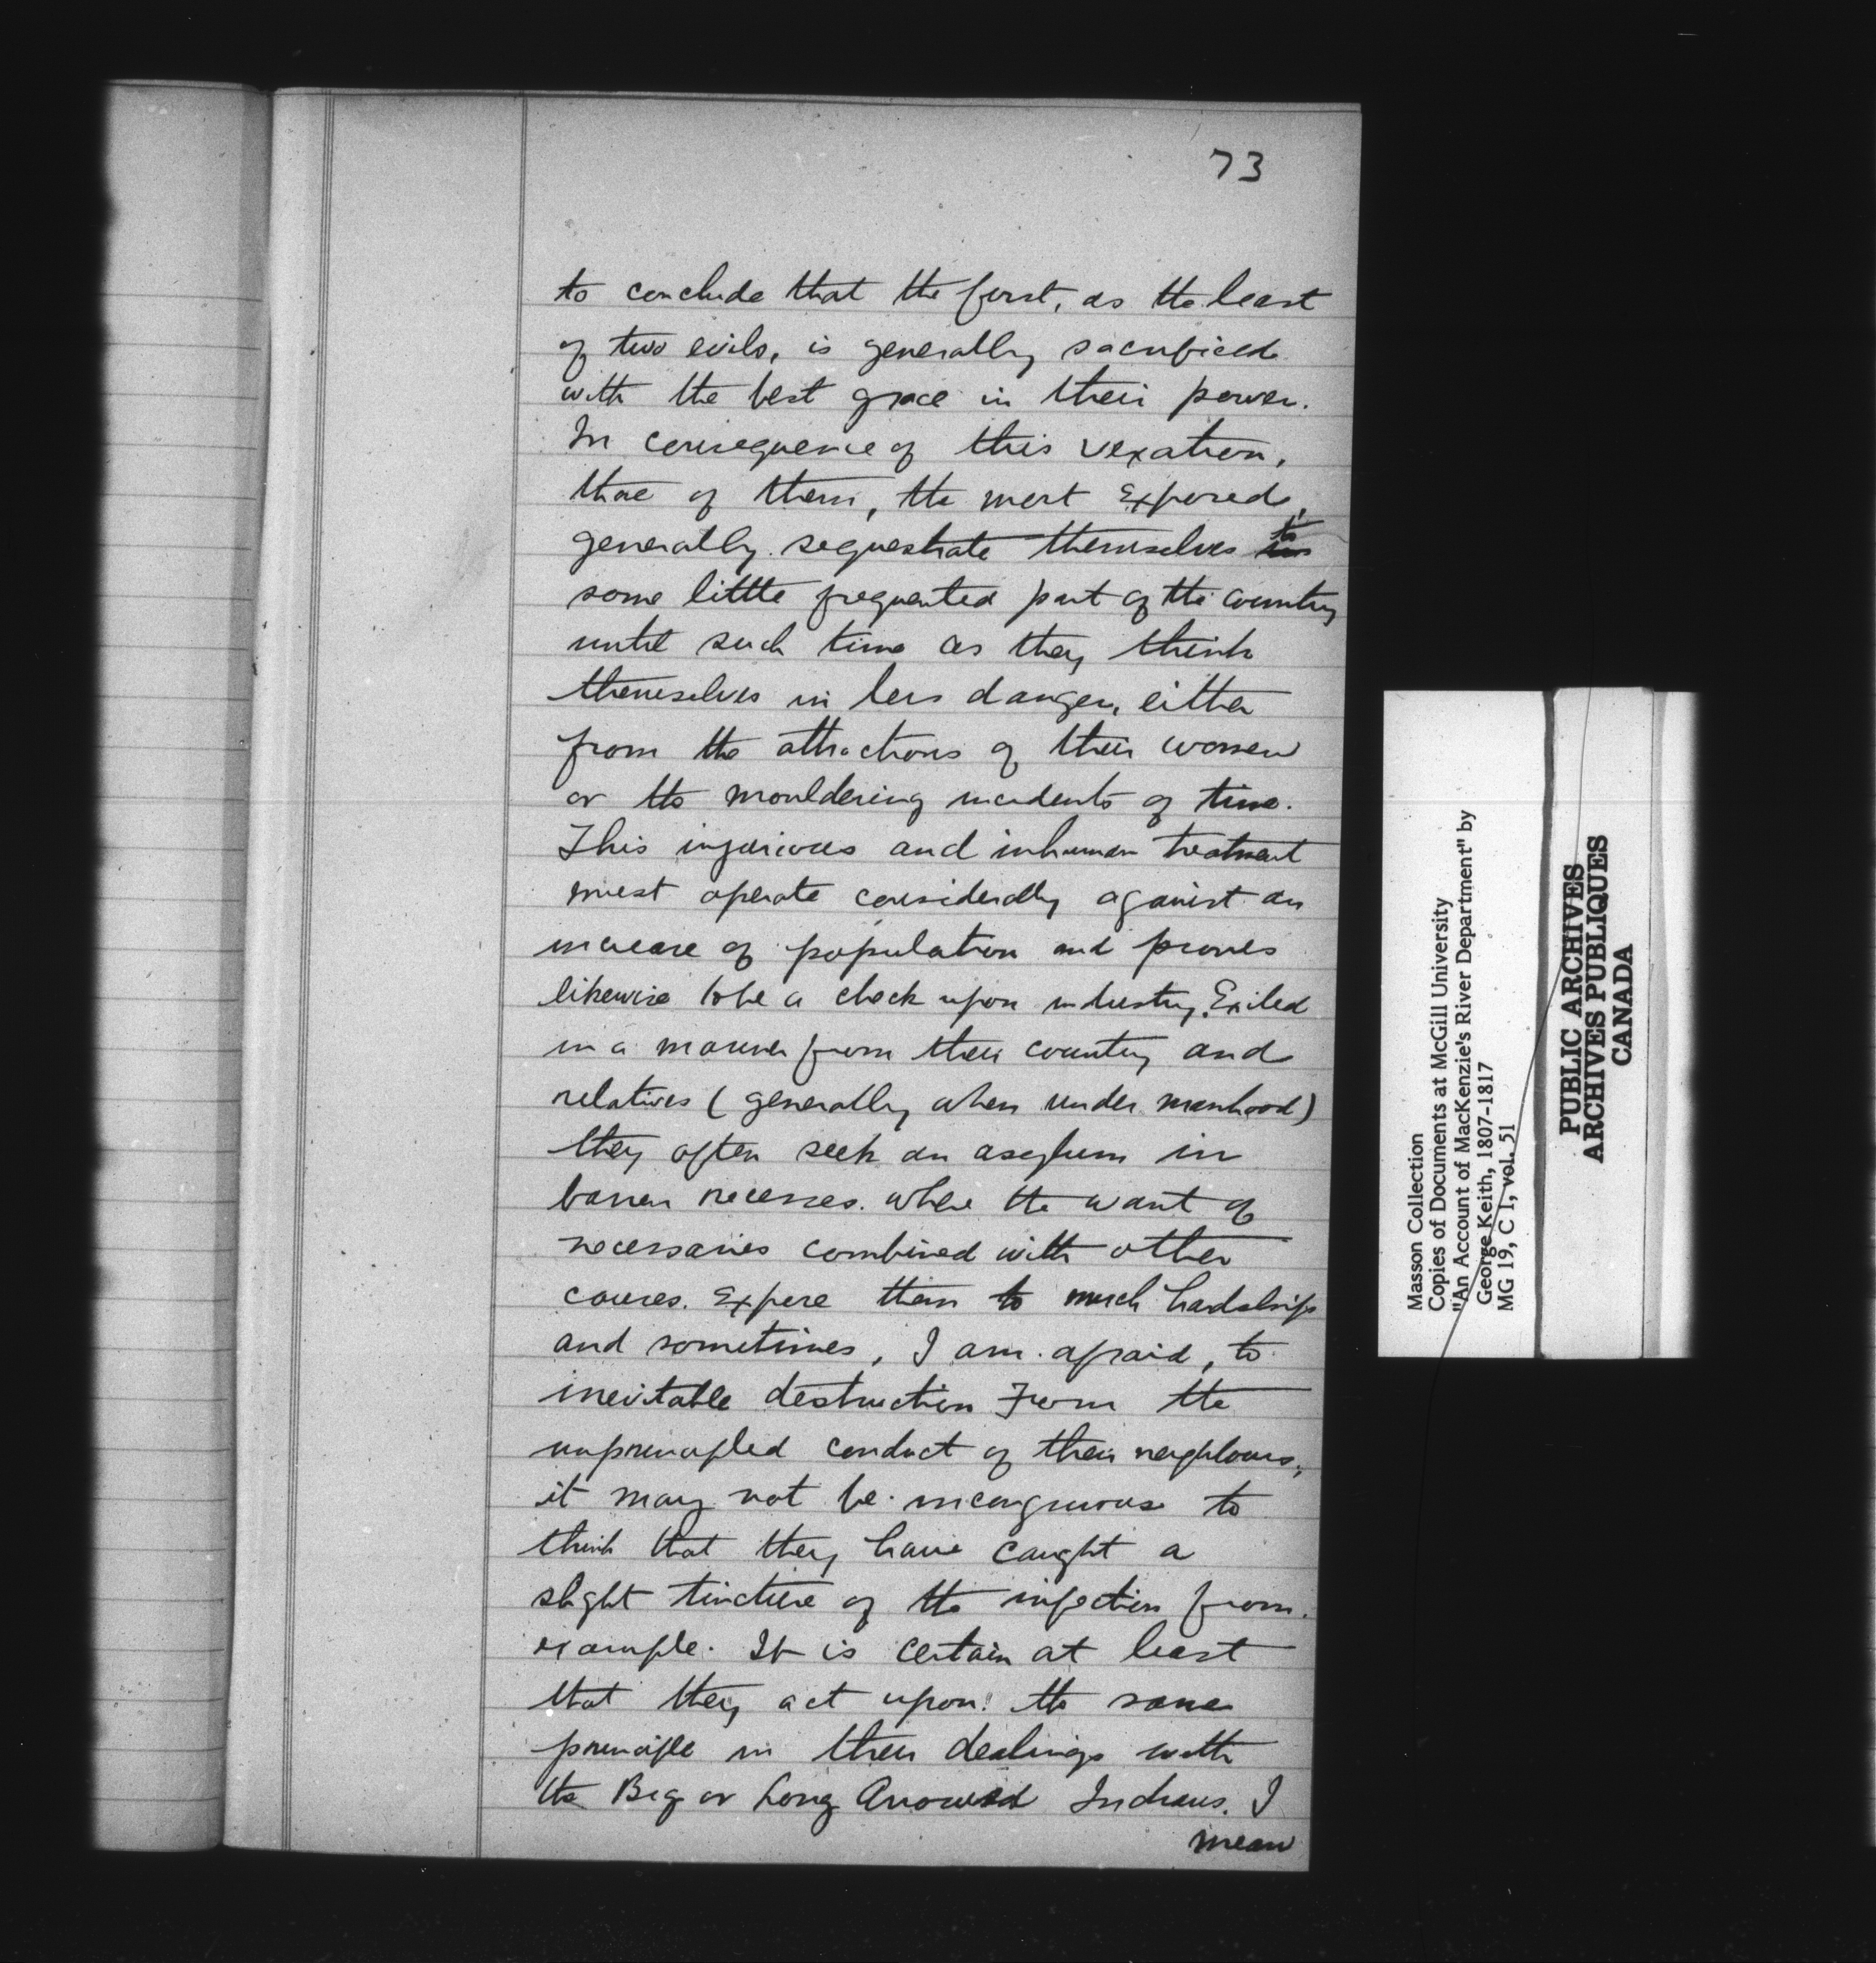 73
to conclude that the first, as the least
of two evils, is generally sacrificed
with the best grace in their power.
In consequence of this vexation,
those of them, the most exposed,
generally sequestrate themselves to
some little frequented part of the country
until such time as they think
themselves in less danger, either
from the attractions of their women
or the mouldering incidents of time.
This injurious and inhuman treatment
must operate considerably against an
increase of population and proves
likewise to be a check upon industry. Exiled
in a manner from their country and
relatives (generally when under manhood)
they often seek an asylum in
barren recesses. where the want of
necessaries combined with other
causes. Expose them to much hardships
and sometimes, I am afraid, to
inevitable destruction From the
unprincipled conduct of their neighbours,
it may not be incongruous to
think that they have caught a
slight tincture of the infection from
example. It is certain at least
that they act upon the same
principle in their dealings with
the Big or Long Arrowed Indians. I
mean
Masson Collection
Copies of Documents at McGill University
"An Account of MacKenzie's River Department" by
George Keith, 1807-1817
MG 19, C 1, vol. 51
PUBLIC ARCHIVES
ARCHIVES PUBLIQUES
CANADA